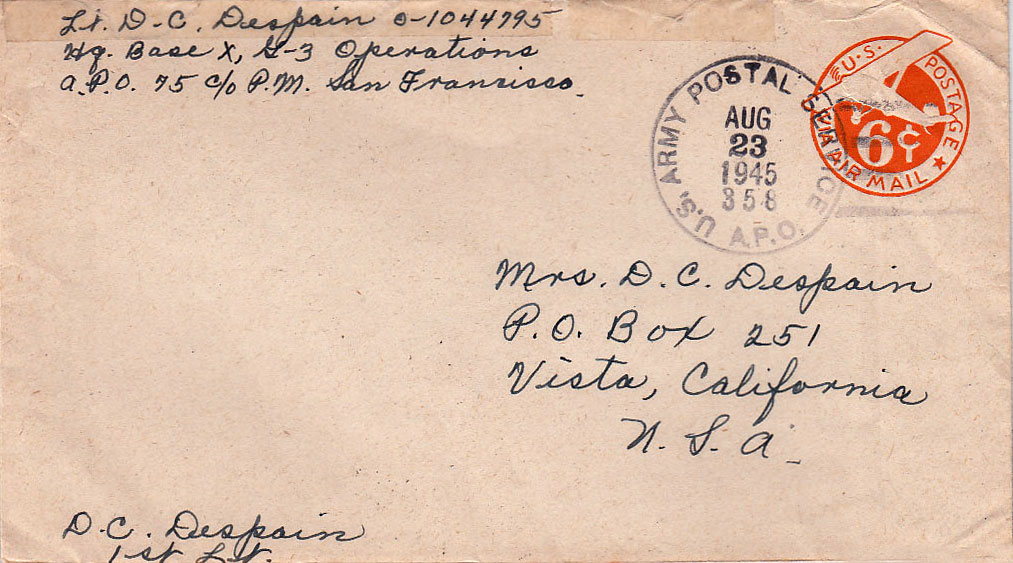 Lt. D.C. Despain O-1044795
Hq. Base X, G-3 Operations
A.P.O. 75 c/o P.M. San Francisco
U.S. ARMY POSTAL SERVICE
AUG
23
1945
358
A.P.O.
U.S. POSTAGE
6¢
VIA AIR MAIL
Mrs. D.C. Despain
P.O. Box 251
Vista, California
U.S.A.
D.C. Despain
1st Lt.